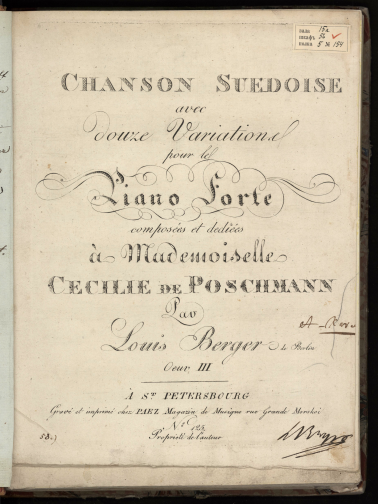 зала 15a
шкафъ 56
полка 5 № 154
CHANSON SUEDOISE
avec
douze Variations
pour le
Piano Forte
composées et dediées
à Mademoiselle
CECILIE DE POSCHMANN
Par
Louis Berger de Berlin
Oeuv. III
À ST. PETERSBOURG
Gravé et imprimé chez PAEZ Magazin de Musique rue Grande Morskoi
N.º 124.
58.) Propriété de l'auteur